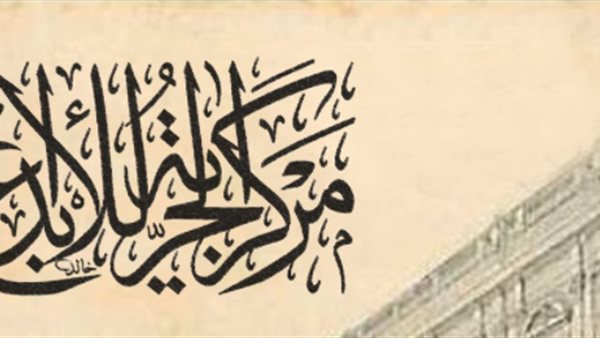 مَركز الحُرِّية للأبداع
خالد